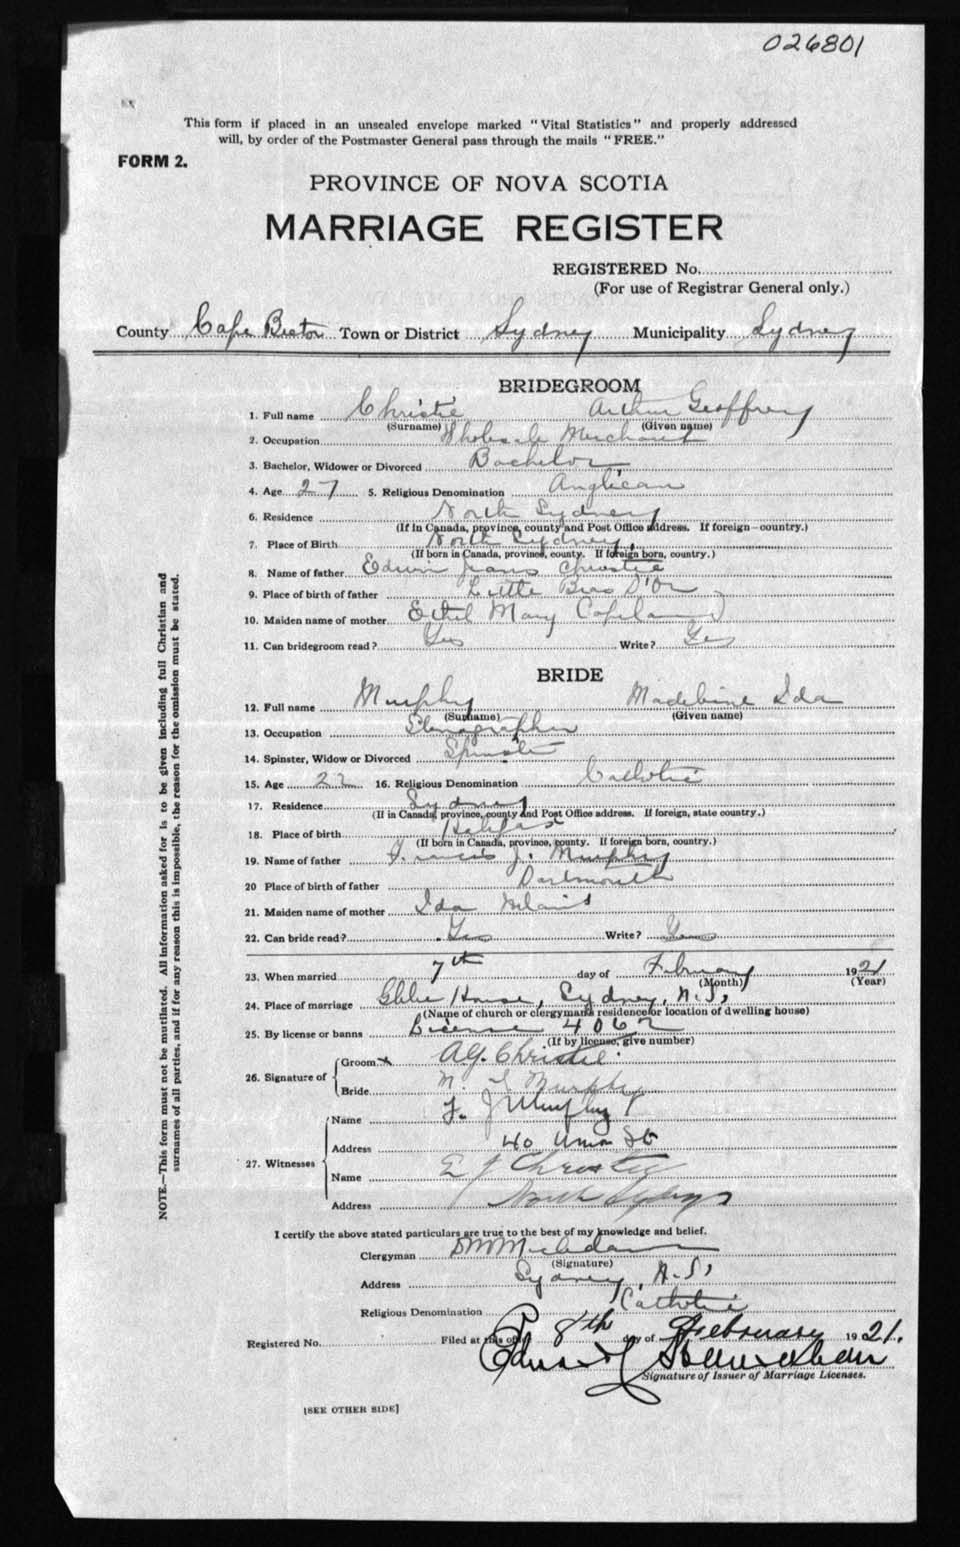 026801
This form if placed in an unsealed envelope marked "Vital Statistics" and properly addressed
will, by order of the Postmaster General pass through the mails "FREE."
FORM 2.
PROVINCE OF NOVA SCOTIA
MARRIAGE REGISTER
REGISTERED No.
(For use of Registrar General only.)
County Cape Breton Town or District Sydney Municipality Sydney
BRIDEGROOM
1. Full name Christie Arthur Geoffrey
(Surname) (Given name)
2. Occupation Wholesale Merchant
3. Bachelor, Widower or Divorced Bachelor
4. Age 27 5. Religious Denomination Anglican
6. Residence North Sydney
(If in Canada, province, county and Post Office address. If foreign—country.)
7. Place of Birth North Sydney
(If born in Canada, province, county. If foreign born, country.)
8. Name of father Edwin Christie
9. Place of birth of father Little Bras D'Or
10. Maiden name of mother Ethel Mary Copeland
11. Can bridegroom read? Yes Write? Yes
BRIDE
12. Full name Murphy Madeline Ida
(Surname) (Given name)
13. Occupation Stenographer
14. Spinster, Widow or Divorced Spinster
15. Age 22 16. Religious Denomination Catholic
17. Residence Sydney
(If in Canada, province, county and Post Office address. If foreign, state country.)
18. Place of birth Halifax
(If born in Canada, province, county. If foreign born, country.)
19. Name of father Francis J. Murphy
20 Place of birth of father Dartmouth
21. Maiden name of mother Ida
22. Can bride read? Yes Write? Yes
23. When married 7th day of February 1921
(Month) (Year)
24. Place of marriage Glebe House, Sydney, N.S,
(Name of church or clergyman's residence for location of dwelling house)
25. By license or banns License 4062
(If by license, give number)
26. Signature of Groom x A.G. Christie.
Bride M. I Murphy
27. Witnesses Name F. J Murphy
Address 40 Union St
Name E J Christie
Address North Sydney
I certify the above stated particulars are true to the best of my knowledge and belief.
Clergyman
(Signature)
Address Sydney, N.S,
Religious Denomination Catholic
Registered No. Filed at this office 8th day of February 1921.
Edward
Signature of Issuer of Marriage Licenses.
[SEE OTHER SIDE]
NOTE.—This form must not be mutilated. All information asked for is to be given including full Christian and
surnames of all parties, and if for any reason this is impossible, the reason for the omission must be stated.